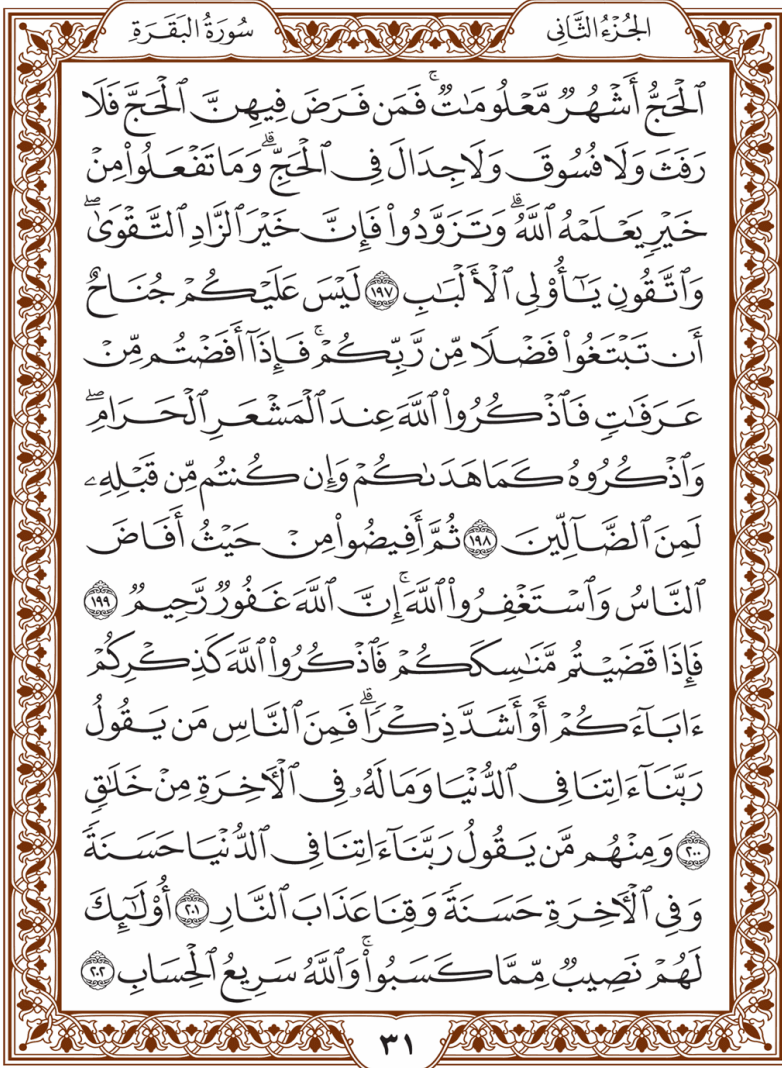 الجُزْءُ الثَّانِى
سُورَةُ البَقَرَةِ
ٱلْحَجُّ أَشْهُرٌ مَّعْلُومَـٰتٌ ۚ فَمَن فَرَضَ فِيهِنَّ ٱلْحَجَّ فَلَا
رَفَثَ وَلَا فُسُوقَ وَلَا جِدَالَ فِى ٱلْحَجِّ ۗ وَمَا تَفْعَلُوا۟ مِنْ
خَيْرٍ يَعْلَمْهُ ٱللَّهُ ۗ وَتَزَوَّدُوا۟ فَإِنَّ خَيْرَ ٱلزَّادِ ٱلتَّقْوَىٰ ۖ
وَٱتَّقُونِ يَـٰٓأُو۟لِى ٱلْأَلْبَـٰبِ ١٩٧ لَيْسَ عَلَيْكُمْ جُنَاحٌ
أَن تَبْتَغُوا۟ فَضْلًا مِّن رَّبِّكُمْ ۚ فَإِذَآ أَفَضْتُم مِّنْ
عَرَفَـٰتٍ فَٱذْكُرُوا۟ ٱللَّهَ عِندَ ٱلْمَشْعَرِ ٱلْحَرَامِ ۖ
وَٱذْكُرُوهُ كَمَا هَدَىٰكُمْ وَإِن كُنتُم مِّن قَبْلِهِۦ
لَمِنَ ٱلضَّآلِّينَ ١٩٨ ثُمَّ أَفِيضُوا۟ مِنْ حَيْثُ أَفَاضَ
ٱلنَّاسُ وَٱسْتَغْفِرُوا۟ ٱللَّهَ ۚ إِنَّ ٱللَّهَ غَفُورٌ رَّحِيمٌ ١٩٩
فَإِذَا قَضَيْتُم مَّنَـٰسِكَكُمْ فَٱذْكُرُوا۟ ٱللَّهَ كَذِكْرِكُمْ
ءَابَآءَكُمْ أَوْ أَشَدَّ ذِكْرًا ۗ فَمِنَ ٱلنَّاسِ مَن يَقُولُ
رَبَّنَآ ءَاتِنَا فِى ٱلدُّنْيَا وَمَا لَهُۥ فِى ٱلْـَٔاخِرَةِ مِنْ خَلَـٰقٍ
٢٠٠ وَمِنْهُم مَّن يَقُولُ رَبَّنَآ ءَاتِنَا فِى ٱلدُّنْيَا حَسَنَةً
وَفِى ٱلْـَٔاخِرَةِ حَسَنَةً وَقِنَا عَذَابَ ٱلنَّارِ ٢٠١ أُو۟لَـٰٓئِكَ
لَهُمْ نَصِيبٌ مِّمَّا كَسَبُوا۟ ۚ وَٱللَّهُ سَرِيعُ ٱلْحِسَابِ ٢٠٢
٣١